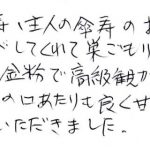 い主人の傘寿のお
べしてくれて巣ごもり
金粉で高級観か
の口あたりも良くせ
いただきました。